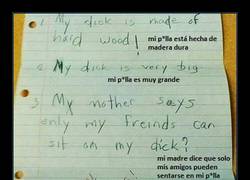 1. My dick is made of
hard wood!
mi p*lla está hecha de
madera dura
2. My dick is very big
mi p*lla es muy grande
3 My mother says
only my Freinds can
sit on my dick?
mi madre dice que solo
mis amigos pueden
sentarse en mi p*lla